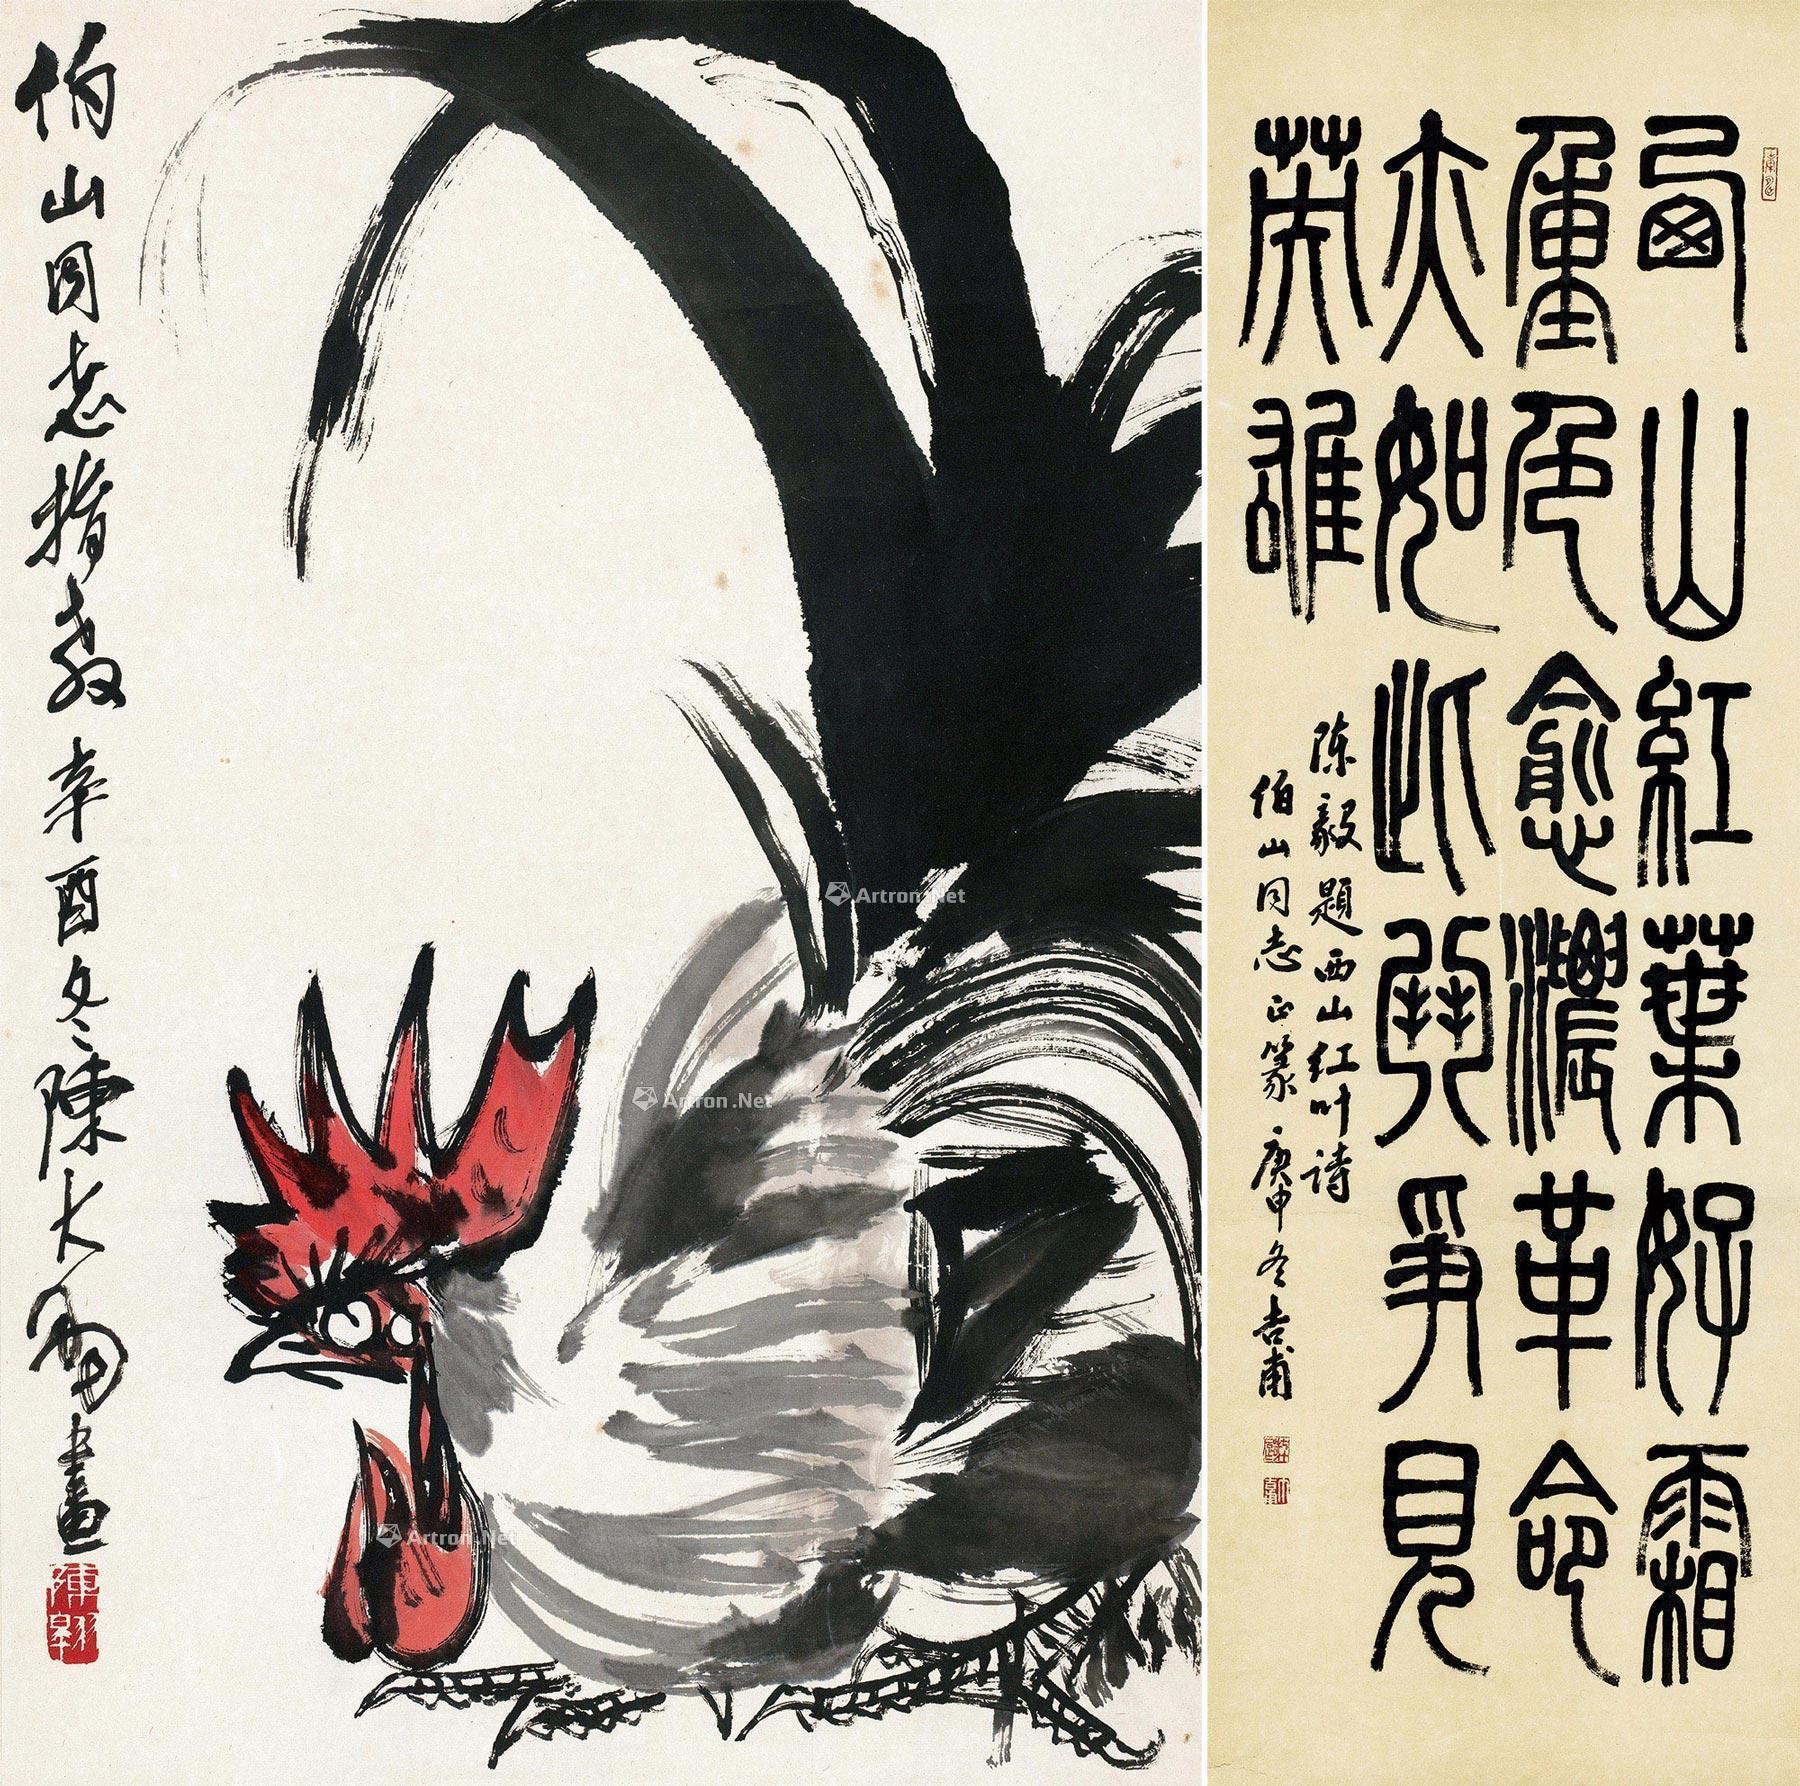 伯山同志指教 辛酉冬 陳大羽畫
陳翱
西山紅葉好霜
重色愈濃革命
亦如此鬥爭見
英雄
陈毅题西山红叶诗
伯山同志正篆 庚申冬 吉甫
Artron.Net
Artron.Net
Artron.Net